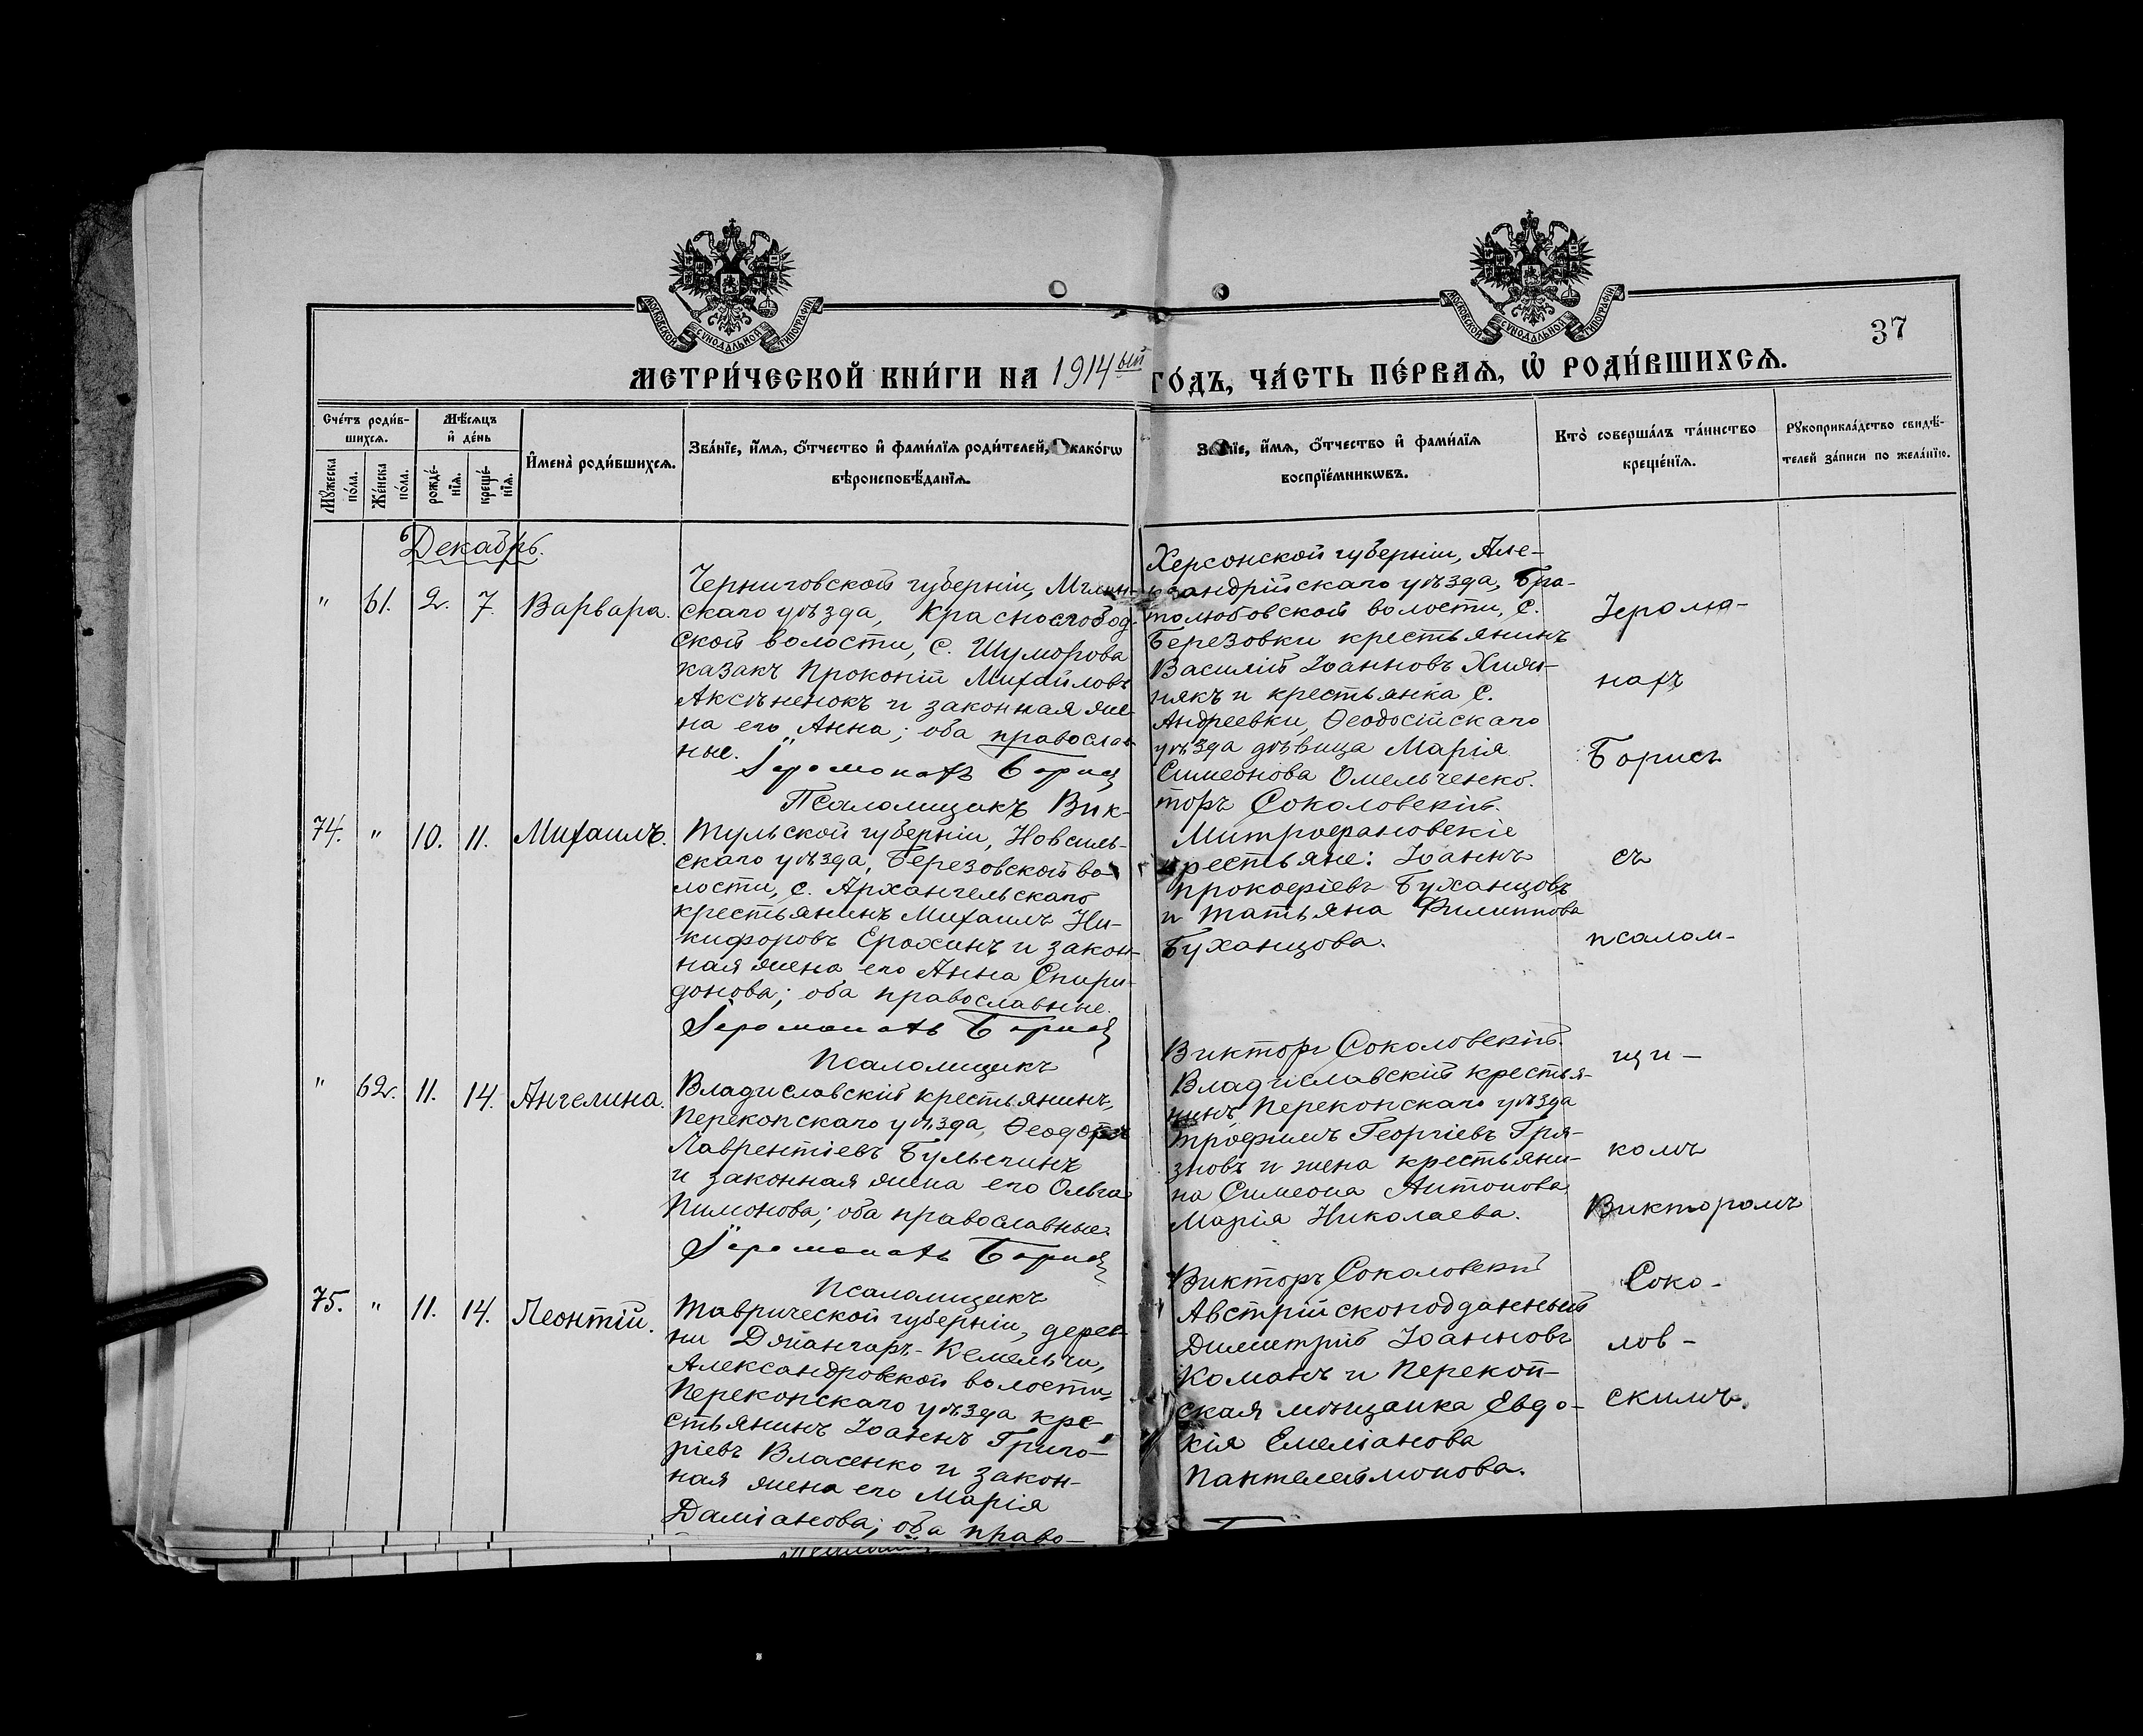 МОСКОВСКОЙ СѴНОДАЛЬНОЙ ТИПОГРАФІИ
МОСКОВСКОЙ СѴНОДАЛЬНОЙ ТИПОГРАФІИ
37
МЕТРИ́ЧЕСКОЙ КНИ́ГИ НА 1914ый ГО́ДЪ, ЧА́СТЬ ПЕ́РВАѦ, Ѽ РОДИ́ВШИХСѦ.
Сче́тъ роди́в-
шихсѧ.
Мѣ́сѧцъ
и҆ де́нь
Мꙋ́жеска по́ла.
Же́нска по́ла.
рожде́-
нїѧ.
креще́-
нїѧ.
И҆мена̀ роди́вшихсѧ.
Зва́нїе, и҆́мѧ, ѻ҆́тчество и҆ фами́лїѧ роди́телей, и҆ како́гѡ
вѣроисповѣ́данїѧ.
Зва́нїе, и҆́мѧ, ѻ҆́тчество и҆ фами́лїѧ
воспрїе́мникѡвъ.
Кто̀ соверша́лъ та́инство
креще́нїѧ.
Рꙋкоприкла́дство свидѣ́-
телей за́писи по жела́нїю.
Декабрь.
" 61. 2. 7. Варвара.
Черниговской губерніи, Мглин-
скаго уѣзда, Краснослобод-
ской волости, с. Шуморова
казакъ Прокопій Михайловъ
Аксѣненокъ и законная же-
на его Анна; оба православ-
ные. Іеромонахъ Борисъ
Псаломщикъ Вик-
Херсонской губерніи, Але-
ксандрійскаго уѣзда, Бра-
толюбовской волости, с.
Березовки крестьянинъ
Василій Іоанновъ
и крестьянка с.
Андреевки, Ѳеодосійскаго
уѣзда дѣвица Марія
Симеонова Омельченко.
торъ Соколовскій.
74. " 10. 11. Михаилъ.
Тульской губерніи, Новсиль-
скаго уѣзда, Березовской во-
лости, с. Архангельскаго
крестьянинъ Михаилъ Ни-
кифоровъ Ерохинъ и закон-
ная жена его Анна Спири-
донова; оба православные.
Іеромонахъ Борисъ
Псаломщикъ
Митрофановскіе
крестьяне: Іоаннъ
Прокофіевъ Буханцовъ
и Татьяна Филиппова
Буханцова.
Викторъ Соколовскій.
" 62. 11. 14. Ангелина.
Владиславскій крестьянинъ,
Перекопскаго уѣзда, Ѳеодоръ
Лаврентіевъ Булыгинъ
и законная жена его Ольга
Пимонова; оба православные.
Іеромонахъ Борисъ
Псаломщикъ
Владиславскій крестья-
нинъ, Перекопскаго уѣзда
Трофимъ Георгіевъ Гря-
зновъ и жена крестьяни-
на Симеона Антонова
Марія Николаева.
Викторъ Соколовскій
75. " 11. 14. Леонтій.
Таврической губерніи, дерев-
ни Джангаръ-Кемельчи,
Александровской волости,
Перекопскаго уѣзда кре-
стьянинъ Іоаннъ Григо-
ріевъ Власенко и закон-
ная жена его Марія
Даміанова; оба право-
Австрійскоподданный
Димитрій Іоанновъ
Команъ и Перекоп-
ская мѣщанка Евдо-
кія Емеліанова
Пантелеймонова.
Іеромо-
нахъ
Борисъ
съ
псалом-
щи-
комъ
Викторомъ
Соко-
лов-
скимъ.